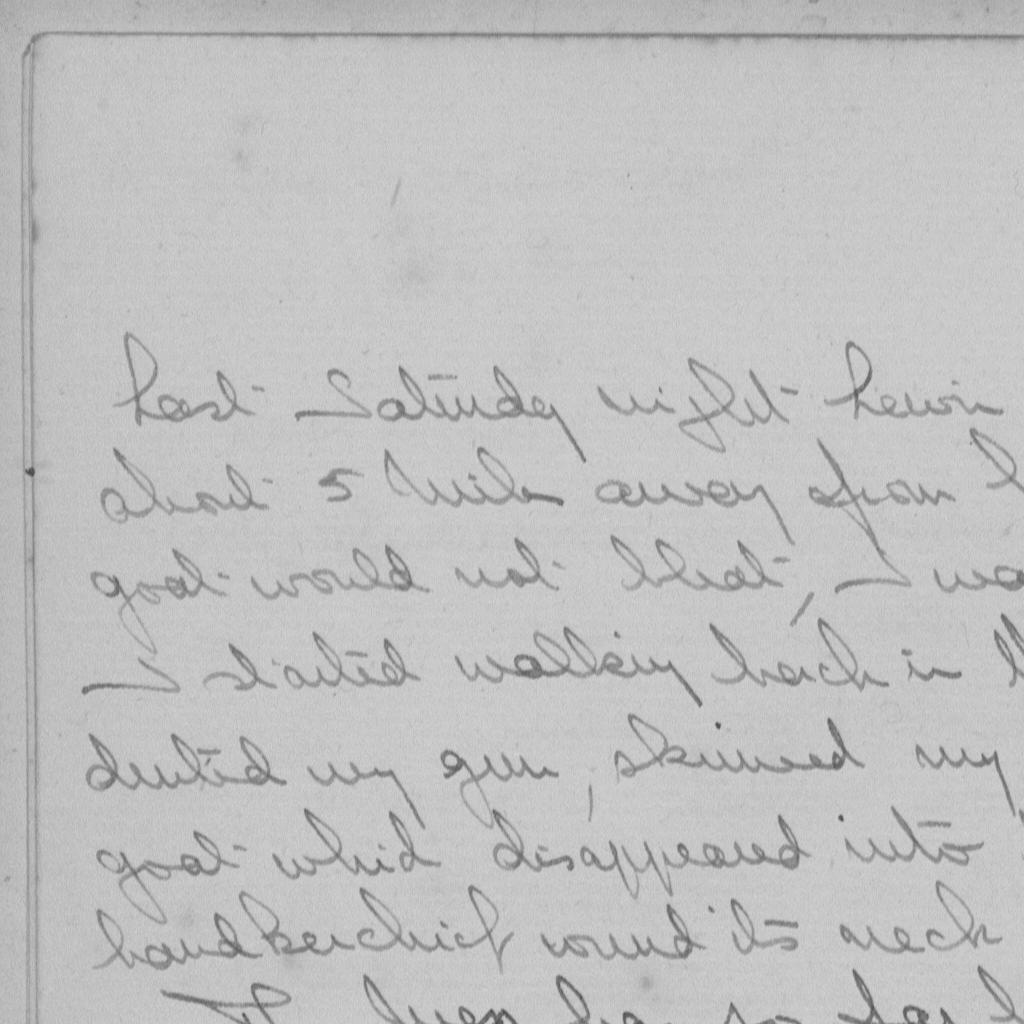 Last Saturday night
about 5 miles away from
goat would not bleat, I wa
I started walking back in
dented my gun, skinned my
goat which disappeared into
handkerchief round its neck